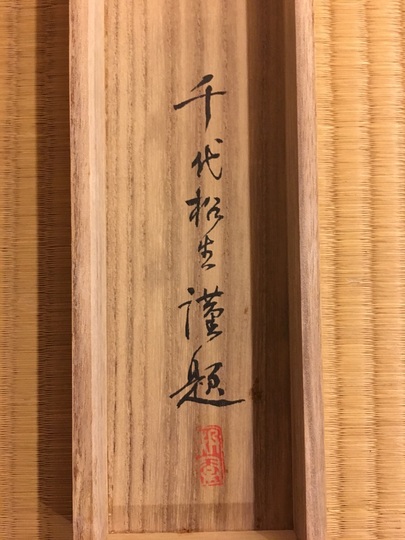 千代松生謹題